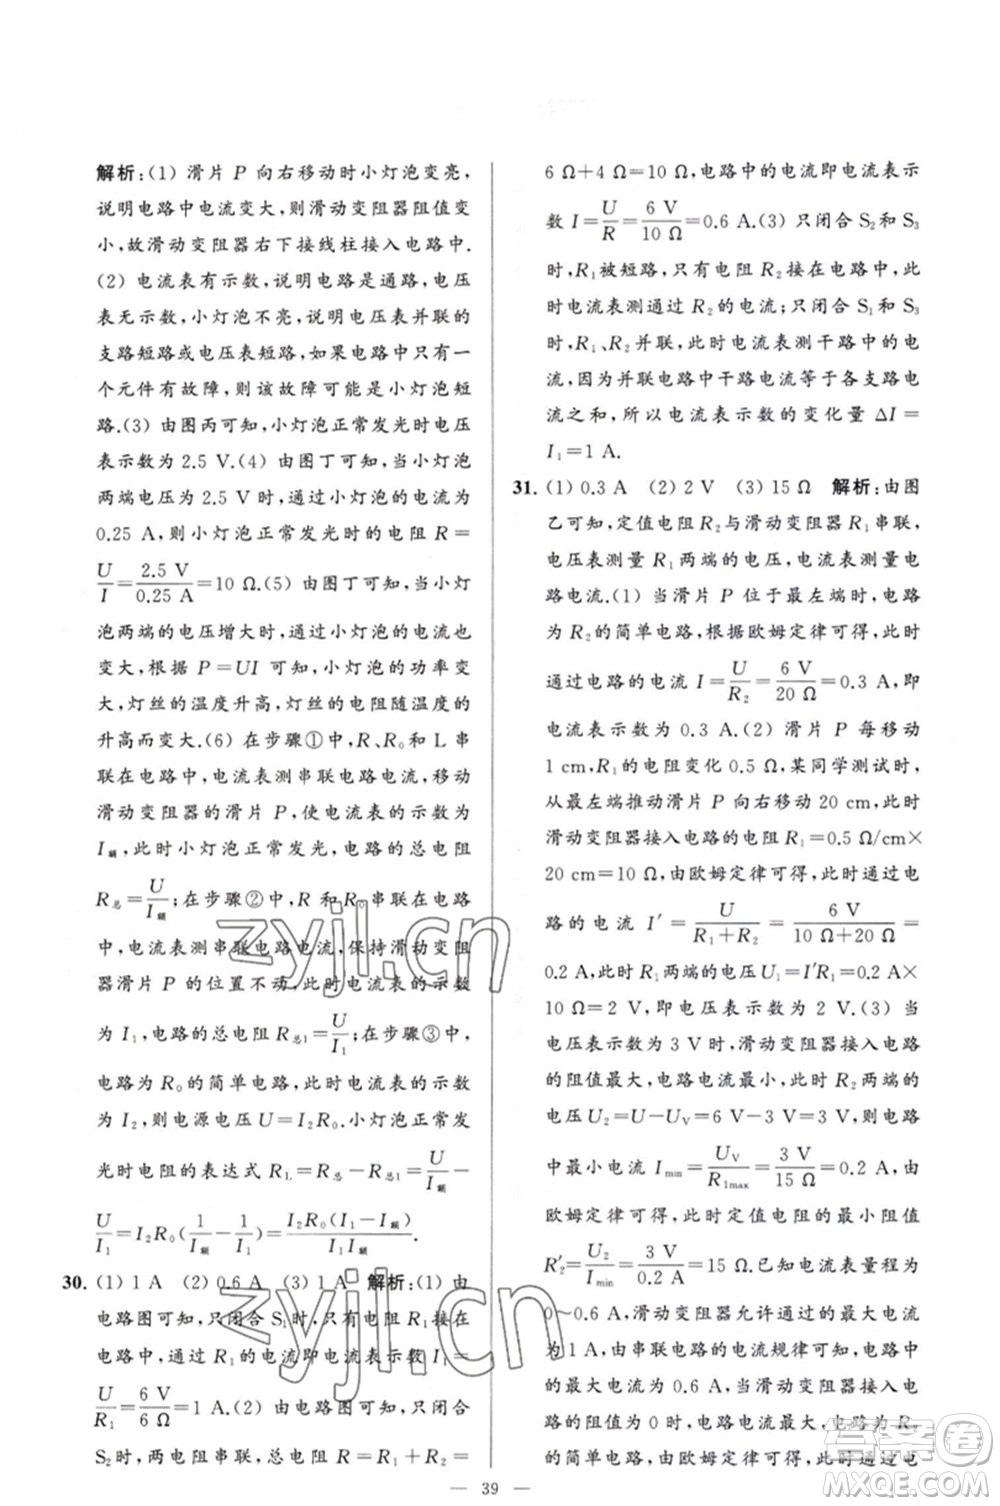 解析:(1) 滑片 P 向右移动时小灯泡变亮,
说明电路中电流变大,则滑动变阻器阻值变
小,故滑动变阻器右下接线柱接入电路中.
(2) 电流表有示数,说明电路是通路,电压
表无示数,小灯泡不亮,说明电压表并联的
支路短路或电压表短路,如果电路中只有一
个元件有故障,则该故障可能是小灯泡短
路.(3) 由图丙可知,小灯泡正常发光时电压
表示数为 2.5 V.(4) 由图丁可知,当小灯泡
两端电压为 2.5 V 时,通过小灯泡的电流为
0.25 A,则小灯泡正常发光时的电阻 R=
U/I=2.5 V/0.25 A=10 Ω.(5) 由图丁可知,当小灯
泡两端的电压增大时,通过小灯泡的电流也
变大,根据 P=UI 可知,小灯泡的功率变
大,灯丝的温度升高,灯丝的电阻随温度的
升高而变大.(6) 在步骤①中,R、R₀和 L 串
联在电路中,电流表测串联电路电流,移动
滑动变阻器的滑片 P,使电流表的示数为
I额,此时小灯泡正常发光,电路的总电阻
R总=U/I额;在步骤②中,R 和 R₀串联在电路
中,电流表测串联电路电流,保持滑动变阻
器滑片 P 的位置不动,此时电流表的示数
为 I₁,电路的总电阻 R总1=U/I₁;在步骤③中,
电路为 R₀的简单电路,此时电流表的示数
为 I₂,则电源电压 U=I₂R₀.小灯泡正常发
光时电阻的表达式 RL=R总-R总1=U/I额-
U/I₁=I₂R₀(1/I额-1/I₁)=I₂R₀(I₁-I额)/I额I₁.
30. (1) 1 A (2) 0.6 A (3) 1 A 解析:(1) 由
电路图可知,只闭合 S₁时,只有电阻 R₁接在
电路中,通过 R₁的电流即电流表示数 I₁=
U/R₁=6 V/6 Ω=1 A.(2) 由电路图可知,只闭合
S₂时,两电阻串联,总电阻 R=R₁+R₂=
6 Ω+4 Ω=10 Ω,电路中的电流即电流表示
数 I=U/R=6 V/10 Ω=0.6 A.(3) 只闭合 S₂和 S₃
时,R₁被短路,只有电阻 R₂接在电路中,此
时电流表测通过 R₂的电流;只闭合 S₁和 S₃
时,R₁、R₂并联,此时电流表测干路中的电
流,因为并联电路中干路电流等于各支路电
流之和,所以电流表示数的变化量 ΔI=
I₁=1 A.
31. (1) 0.3 A (2) 2 V (3) 15 Ω 解析:由图
乙可知,定值电阻 R₂与滑动变阻器 R₁串联,
电压表测量 R₁两端的电压,电流表测量
电路电流.(1) 当滑片 P 位于最左端时,电路
为 R₂的简单电路,根据欧姆定律可得,此时
通过电路的电流 I=U/R₂=6 V/20 Ω=0.3 A,即
电流表示数为 0.3 A.(2) 滑片 P 每移动
1 cm,R₁的电阻变化 0.5 Ω,某同学测试时,
从最左端推动滑片 P 向右移动 20 cm,此时
滑动变阻器接入电路的电阻 R₁=0.5 Ω/cm×
20 cm=10 Ω,由欧姆定律可得,此时通过电
路的电流 I′=U/(R₁+R₂)=6 V/(10 Ω+20 Ω)=
0.2 A,此时 R₁两端的电压 U₁=I′R₁=0.2 A×
10 Ω=2 V,即电压表示数为 2 V.(3) 当
电压表示数为 3 V时,滑动变阻器接入电路
的阻值最大,电流最小,此时 R₂两端的
电压 U₂=U-UV=6 V-3 V=3 V,则电路
中最小电流 Imin=UV/R1max=3 V/15 Ω=0.2 A,由
欧姆定律可得,此时定值电阻的最小阻值
R′₂=U₂/Imin=3 V/0.2 A=15 Ω.已知电流表量程为
0~0.6 A,滑动变阻器允许通过的最大电流
为 1 A,由串联电路的电流规律可知,电路中
最大电流为 0.6 A,当滑动变阻器接入电路
的阻值为 0 时,电路电流最大,电路为 R₂
的简单电路,由欧姆定律可得,此时电路电
— 39 —
zyjl.cn
zyjl.cn
答案圈
MXQE.COM